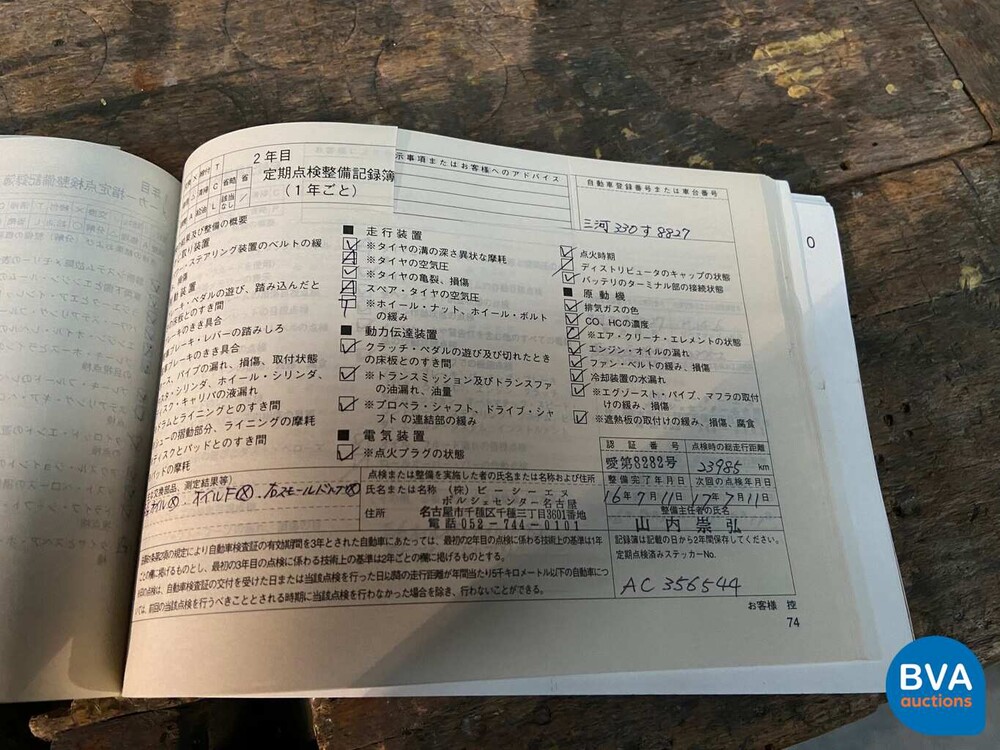 2年目
定期点検整備記録簿
(1年ごと)
示事項またはお客様へのアドバイス
自動車登録番号または車台番号
三河 330 す 8827
結果及び整備の概要
取り装置
ステアリング装置のベルトの緩
損傷
動装置
キ・ペダルの遊び、踏み込んだと
床板とのすき間
ーキのきき具合
ブレーキ・レバーの踏みしろ
ブレーキのきき具合
ス、パイプの漏れ、損傷、取付状態
スタ・シリンダ、ホイール・シリンダ、
ィスク・キャリパの液漏れ
ラムとライニングとのすき間
シューの摺動部分、ライニングの摩耗
ディスクとパッドとのすき間
パッドの摩耗
■ 走行装置
※タイヤの溝の深さ異状な摩耗
※タイヤの空気圧
※タイヤの亀裂、損傷
スペア・タイヤの空気圧
※ホイール・ナット、ホイール・ボルト
の緩み
■ 動力伝達装置
クラッチ・ペダルの遊び及び切れたとき
の床板とのすき間
※トランスミッション及びトランスファ
の油漏れ、油量
※プロペラ・シャフト、ドライブ・シャ
フトの連結部の緩み
■ 電気装置
※点火プラグの状態
点火時期
ディストリビュータのキャップの状態
バッテリのターミナル部の接続状態
■ 原動機
排気ガスの色
CO、HCの濃度
※エア・クリーナ・エレメントの状態
エンジン・オイルの漏れ
ファン・ベルトの緩み、損傷
冷却装置の水漏れ
※エグゾースト・パイプ、マフラの取付
けの緩み、損傷
※遮熱板の取付けの緩み、損傷、腐食
交換部品、測定結果等)
オイルF
点検または整備を実施した者の氏名または名称および住所
氏名または名称 (株) ピーシーエヌ
ポルシェセンター名古屋
住所 名古屋市千種区千種三丁目3601番地
電話 052-744-0101
認証番号 点検時の総走行距離
愛第8282号 23985 km
整備完了年月日 次回の点検年月日
16年7月11日 17年7月11日
整備主任者の氏名
山内崇弘
記録簿は記載の日から2年間保存してください。
定期点検済みステッカーNo.
AC 356544
の規定により自動車検査証の有効期間を3年とされた自動車にあたっては、最初の2年目の点検に係わる技術上の基準は1年
ごとの欄に掲げるものとし、最初の3年目の点検に係わる技術上の基準は2年ごとの欄に掲げるものとする。
の点検は、自動車検査証の交付を受けた日または当該点検を行った日以降の走行距離が年間当たり5千キロメートル以下の自動車につ
ては、前回の当該点検を行うべきこととされる時期に当該点検を行わなかった場合を除き、行わないことができる。
お客様 控
74
BVA
auctions